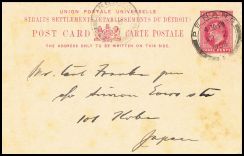 UNION POSTALE UNIVERSELLE
STRAITS SETTLEMENTS (ETABLISSEMENTS DU DÉTROIT)
POST CARD CARTE POSTALE
THE ADDRESS ONLY TO BE WRITTEN ON THIS SIDE.
PENANG
Mr. Carl
c/o Simon Evers &
101 Kobe
Japan